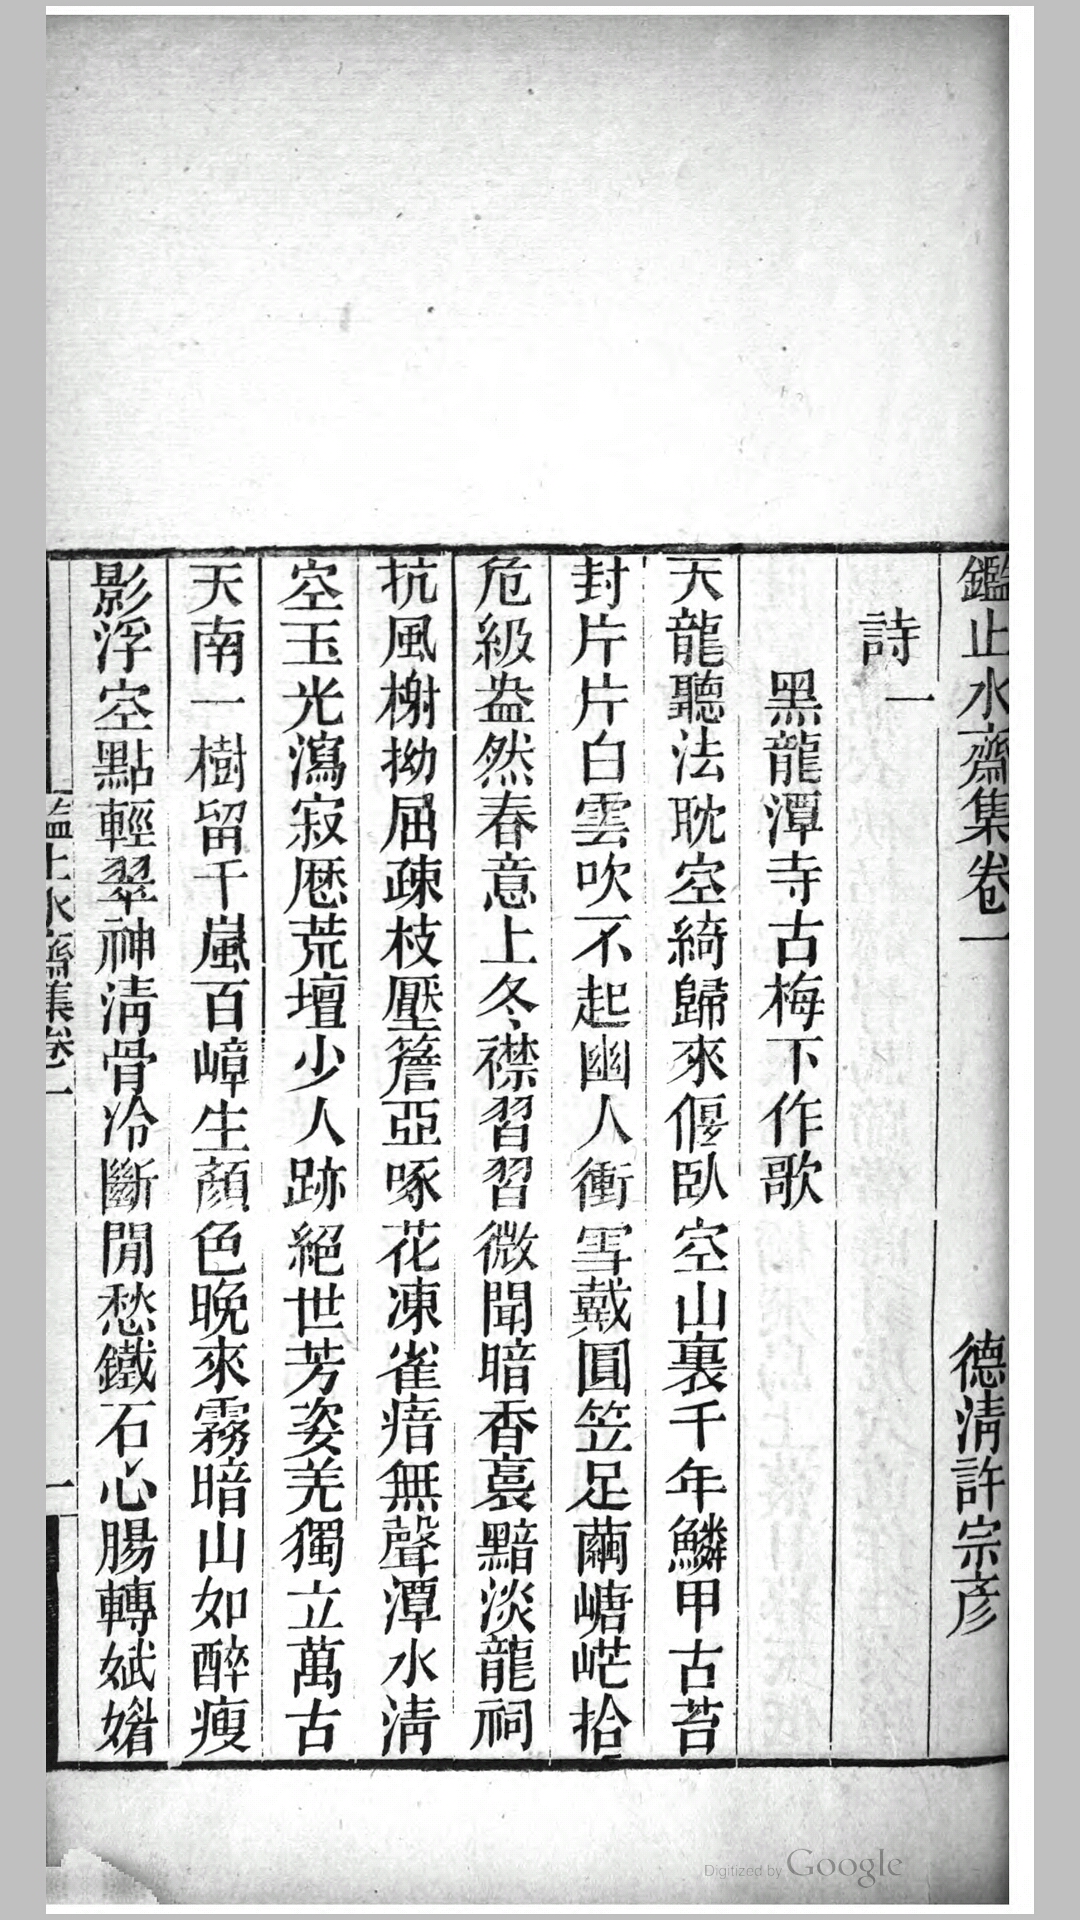 鑑止水齋集卷一
德清許宗彦
詩一
黑龍潭寺古梅下作歌
天龍聽法耽空綺歸來偃臥空山裏千年鱗甲古苔
封片片白雲吹不起幽人衝雪戴圓笠足繭嵣㟐拾
危級盎然春意上冬襟習習微聞暗香裛黯淡龍祠
抗風榭拗屈疎枝壓簷亞啄花凍雀瘖無聲潭水清
空玉光瀉寂厯荒壇少人跡絕世芳姿羌獨立萬古
天南一樹留千嵐百嶂生顏色晚來霧暗山如醉瘦
影浮空點輕翠神清骨冷斷閒愁鐵石心腸轉娬媚
鑑止水齋集卷一
一
Digitized by Google